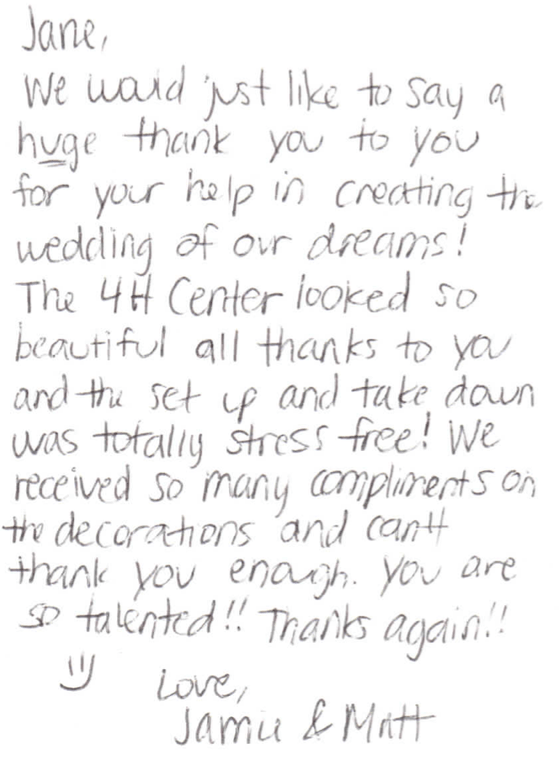 Jane,
We would just like to say a
huge thank you to you
for your help in creating the
wedding of our dreams!
The 4H Center looked so
beautiful all thanks to you
and the set up and take down
was totally stress free! We
received so many compliments on
the decorations and can't
thank you enough. You are
so talented!! Thanks again!!
Love,
Jamie & Matt